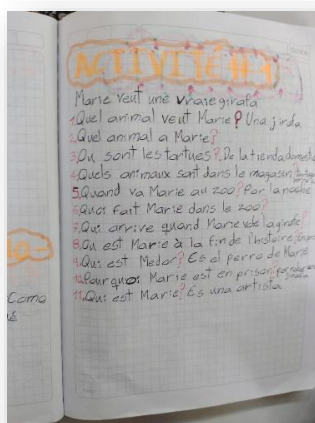 ACTIVITÉ #1
Marie veut une vraie girafa
1.Quel animal veut Marie? Una jirafa
2.Quel animal a Marie?
3.Ou sont les tortues?.De la tienda domestic
4.Quels animaux sont dans le magasin
5.Quand va Marie au zoo? Por la noche
6.Quoi fait Marie dans le zoo?
7.Qui arrive quand Marie vole la girafe?
8.Ou est Marie à la fin de l'histoire?
9.Qui est Medor? Es el perro de Marie
10.Pourquoi Marie est en prison? por robar
11.Qui est Marie? Es una artista
Como